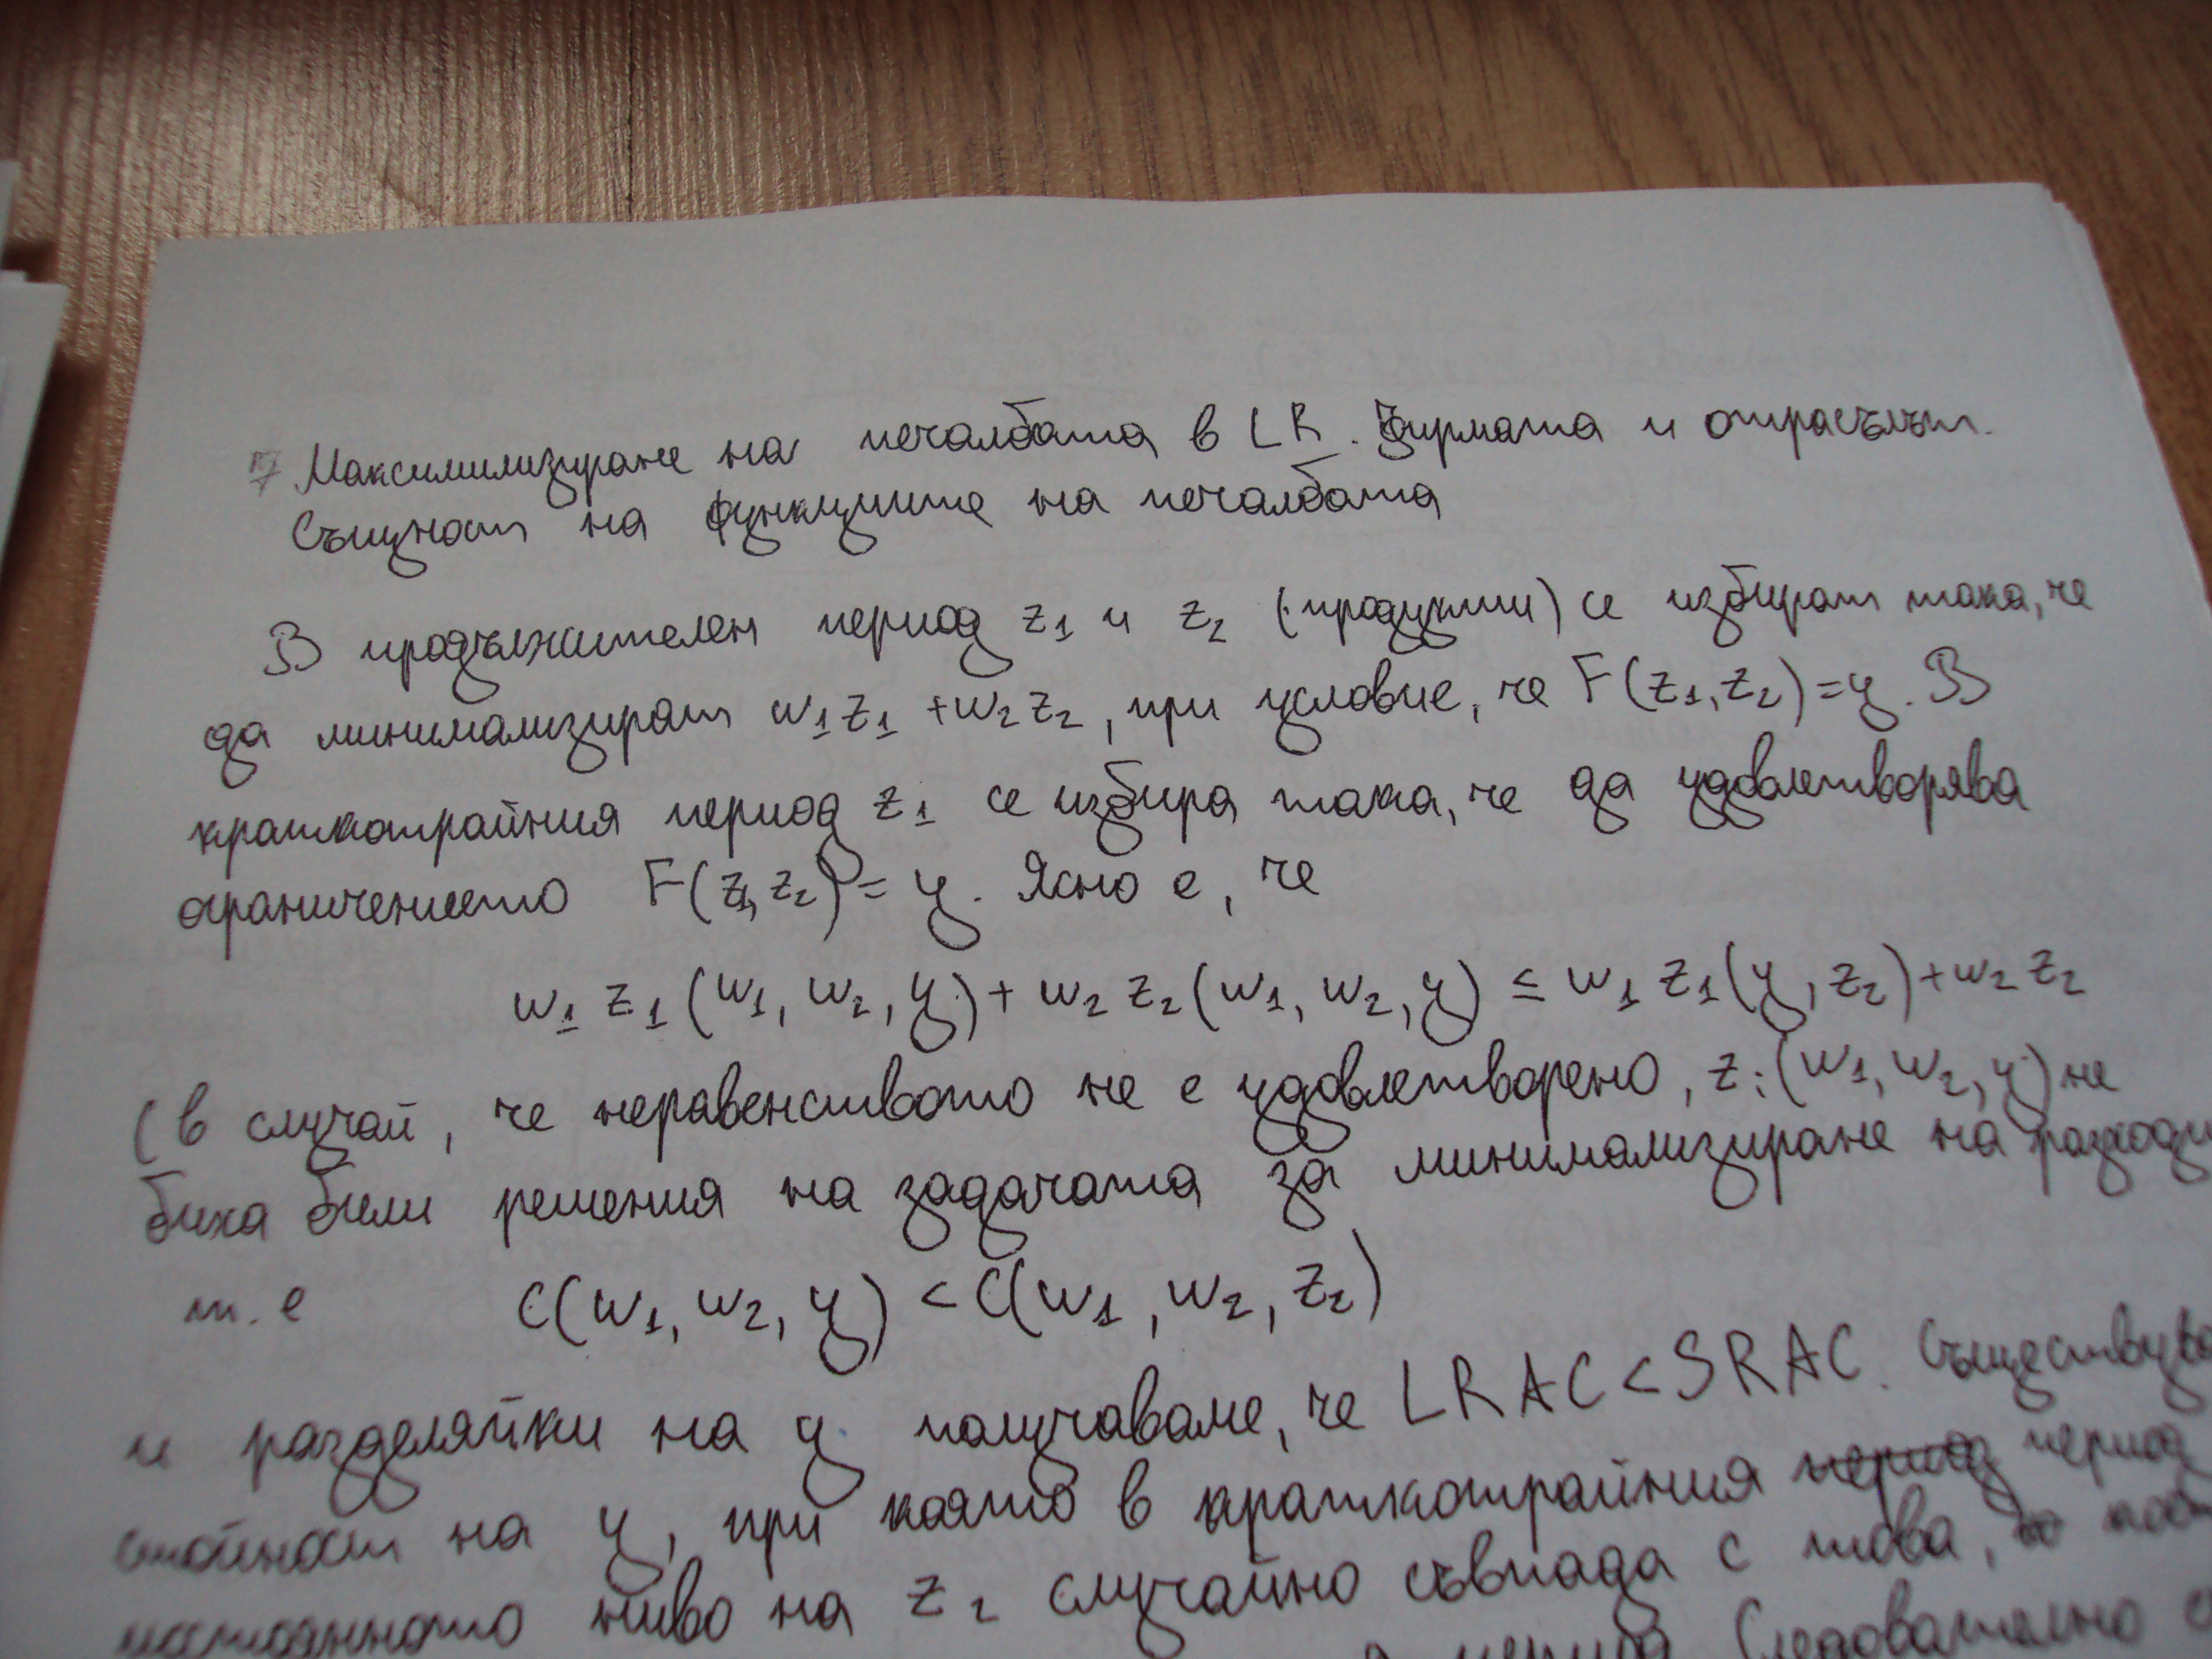 17 Максимилизиране на печалбата в LR. Фирмата и отрасълът.
Същност на функциите на печалбата
В продължителен период z₁ и z₂ (продукти) се избират така, че
да минимализират w₁z₁ + w₂z₂, при условие, че F(z₁, z₂) = y. В
краткотрайния период z₁ се избира така, че да удовлетворява
ограничението F(z₁, z₂) = y. Ясно е, че
w₁ z₁ (w₁, w₂, y) + w₂ z₂ (w₁, w₂, y) ≤ w₁ z₁ (y, z₂) + w₂ z₂
(в случай, че неравенството не е удовлетворено, zᵢ (w₁, w₂, y) не
биха били решения на задачата за минимализиране на разходи
т. е C(w₁, w₂, y) < C(w₁, w₂, z₂)
и разделяйки на y получаваме, че LRAC < SRAC. Съществува
стойност на y, при която в краткотрайния период период
постоянното ниво на z₂ случайно съвпада с това,
Следователно